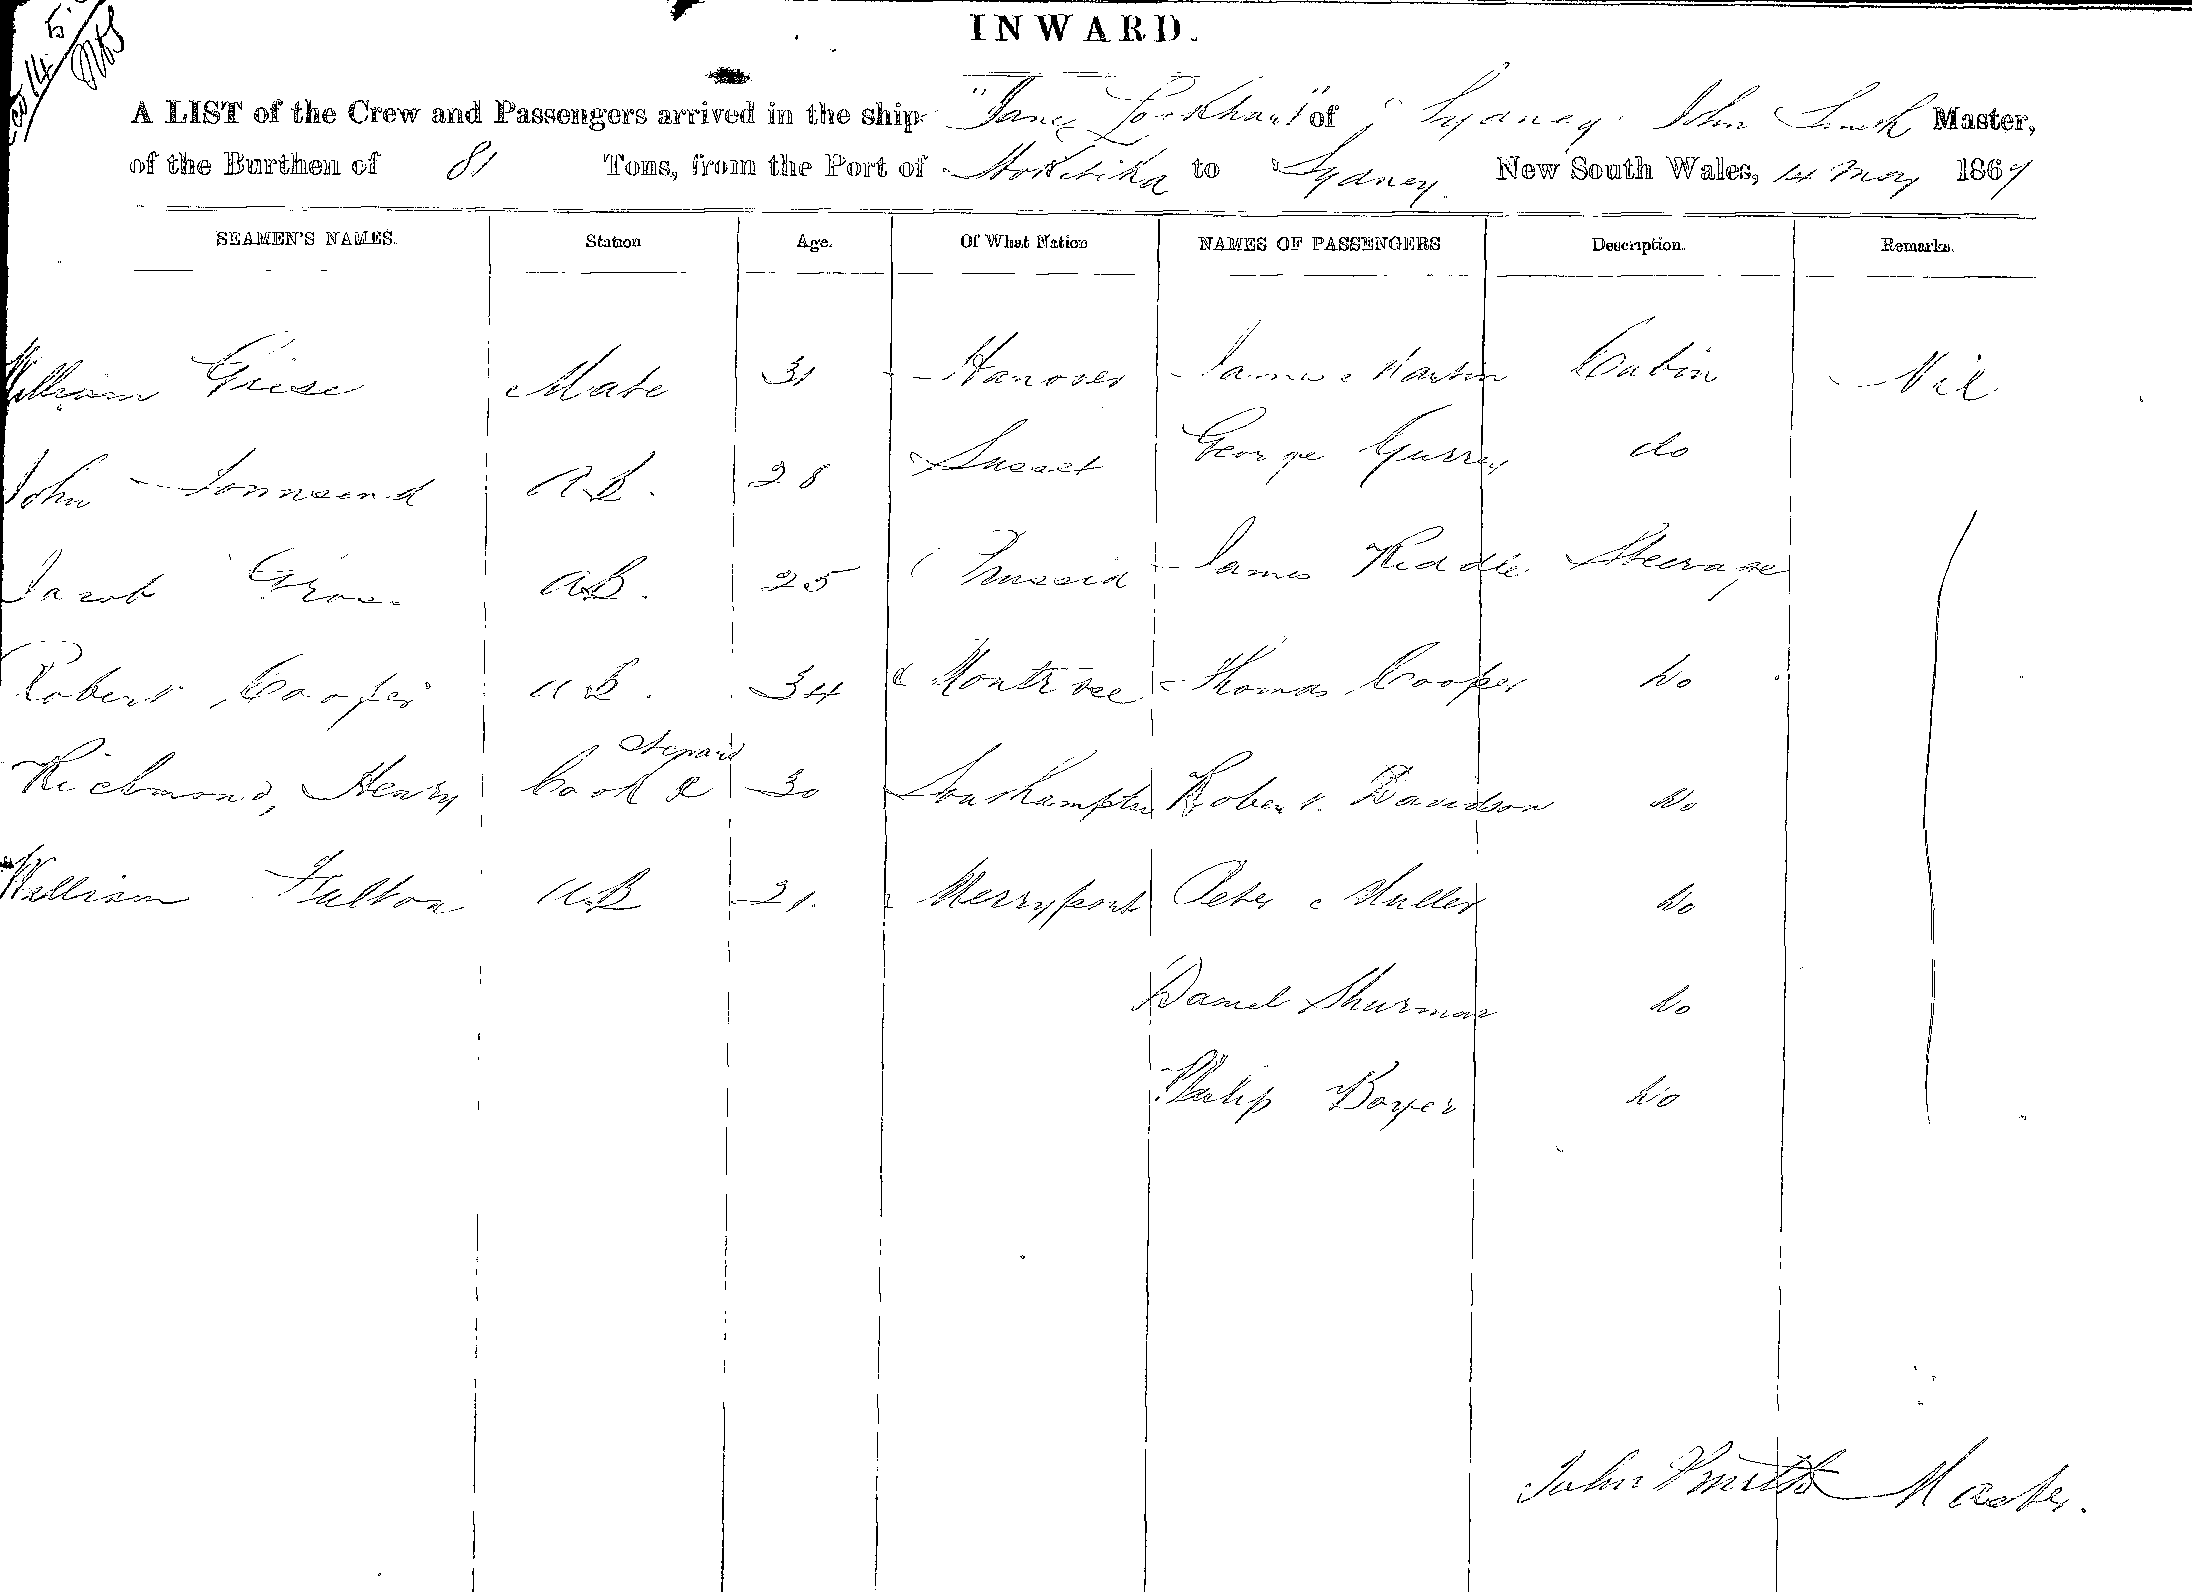 INWARD.
A LIST of the Crew and Passengers arrived in the ship "Jane Lockhart" of Sydney John Smith Master,
of the Burthen of 81 Tons, from the Port of Hokitika to Sydney New South Wales, 14 May 1867
SEAMEN'S NAMES. Station Age. Of What Nation NAMES OF PASSENGERS Description. Remarks.
William Griese Mate 31 Hanover James Martin Cabin Nil
John Townsend AB. 28 Sussex George Gurrey do
Jacob Gross AB. 25 Prussia James Keddie Steerage
Robert Cooper AB. 34 Montrose Thomas Cooper Do
Steward
Richmond, Henry Cook & 30 Southampton Robert Davidson Do
William Fulton AB 21. Merryport Peter Muller Do
Daniel Shurman Do
Philip Boyer Do
John Smith Master.